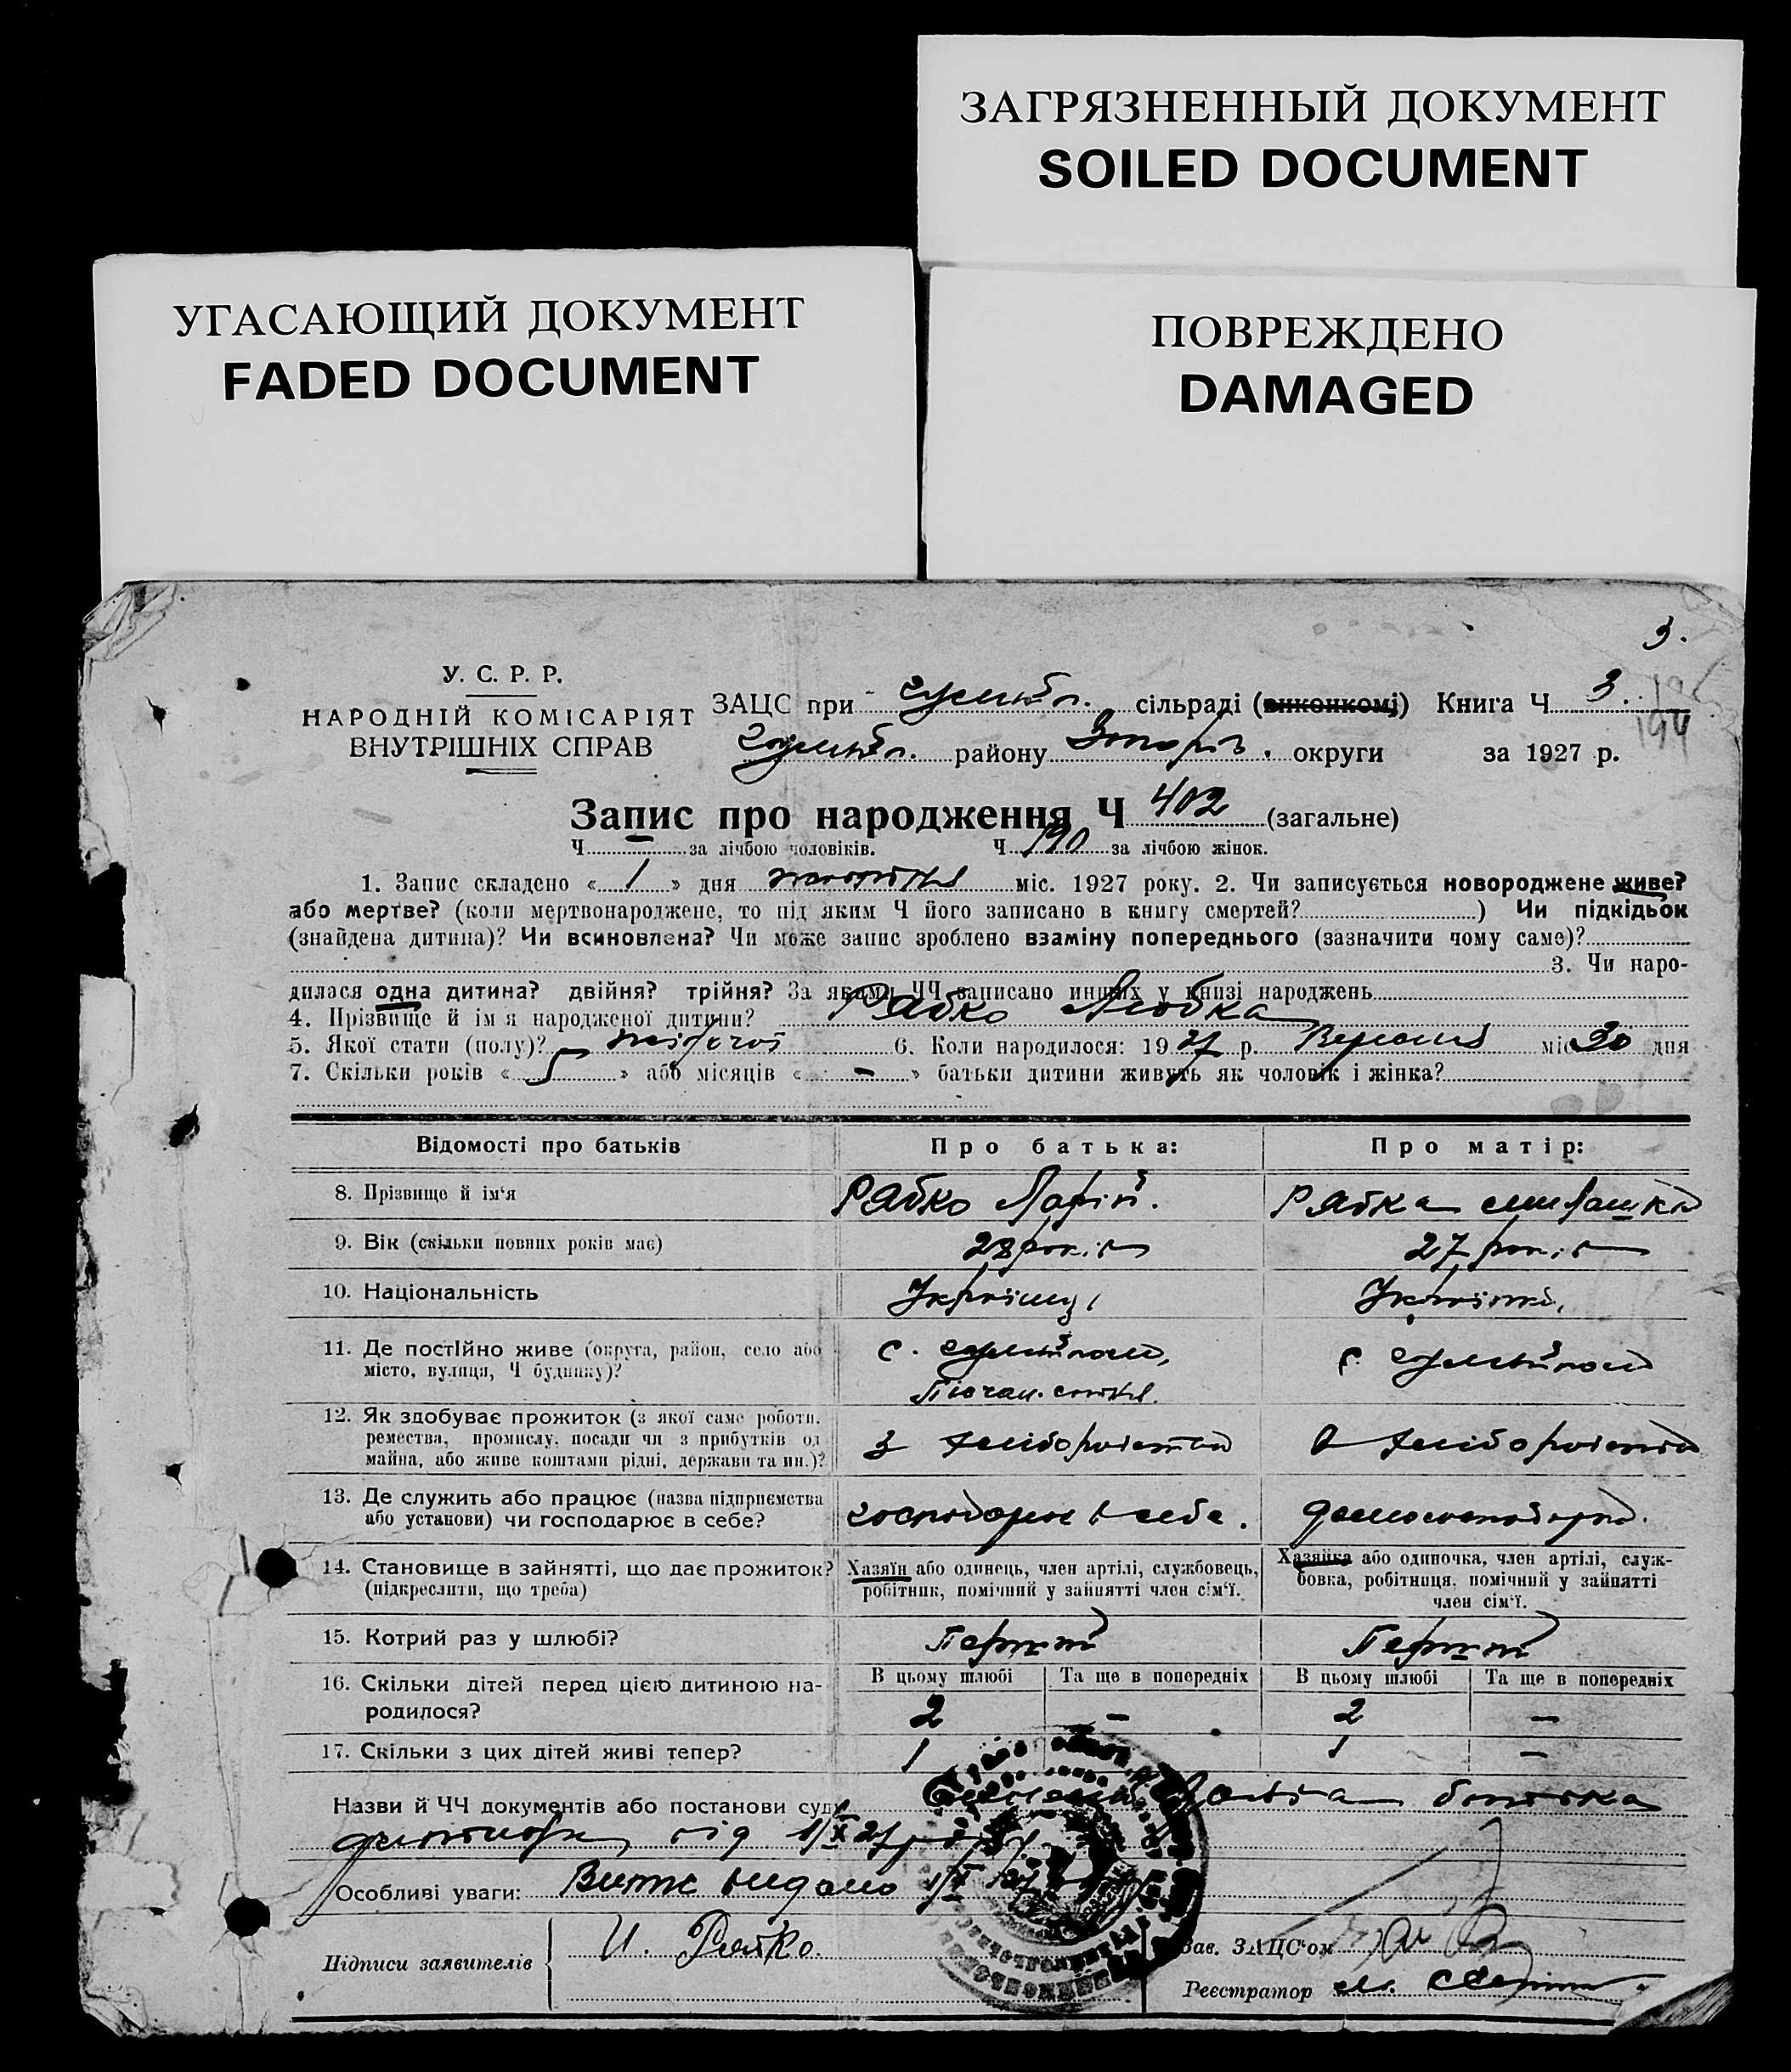 ЗАГРЯЗНЕННЫЙ ДОКУМЕНТ
SOILED DOCUMENT
УГАСАЮЩИЙ ДОКУМЕНТ
FADED DOCUMENT
ПОВРЕЖДЕНО
DAMAGED
3.
У. С. Р. Р.
НАРОДНІЙ КОМІСАРІЯТ
ВНУТРІШНІХ СПРАВ
ЗАЦС при сільраді (виконкомі) Книга Ч 3.
району Запоріз. округи за 1927 р.
Запис про народження Ч 402 (загальне)
Ч за лічбою чоловіків. Ч 190 за лічбою жінок.
1. Запис складено « 1 » дня жовтня міс. 1927 року. 2. Чи записується новороджене живе?
або мертве? (коли мертвонароджене, то під яким Ч його записано в книгу смертей? ) Чи підкідьок
(знайдена дитина)? Чи всиновлена? Чи може запис зроблено взаміну попереднього (зазначити чому саме)?
3. Чи наро-
дилася одна дитина? двійня? трійня? За якими ЧЧ записано инших у книзі народжень
4. Прізвище й ім'я народженої дитини? Рябко Любка
5. Якої стати (полу)? жіночої 6. Коли народилося: 1927 р. Вересня міс 30 дня
7. Скільки років « 5 » або місяців « - » батьки дитини живуть як чоловік і жінка?
Відомості про батьків Про батька: Про матір:
8. Прізвище й ім'я Рябко Рябка
9. Вік (скільки повних років має) 28 років 27 років
10. Національність Українец Українка
11. Де постійно живе (округа, район, село або
місто, вулиця, Ч будинку)? с. с.
12. Як здобуває прожиток (з якої саме роботи,
ремества, промислу, посади чи з прибутків од
майна, або живе коштами рідні, держави та ин.)? З хліборобства хліборобства
13. Де служить або працює (назва підприємства
або установи) чи господарює в себе? господарює в себе. домогосподарка.
14. Становище в зайнятті, що дає прожиток?
(підкреслити, що треба)
Хазяїн або одинець, член артілі, службовець,
робітник, помічний у зайнятті член сім'ї.
Хазяйка або одиночка, член артілі, служ-
бовка, робітниця, помічний у зайнятті
член сім'ї.
15. Котрий раз у шлюбі? Перший Перший
16. Скільки дітей перед цією дитиною на-
родилося?
В цьому шлюбі Та ще в попередніх В цьому шлюбі Та ще в попередніх
2 - 2 -
17. Скільки з цих дітей живі тепер? 1 1 -
Назви й ЧЧ документів або постанови суду заява батька
від 1/X 27 року
Особливі уваги: Витяг видано 1/X 27
Підписи заявителів И. Рябко.
Зав. ЗАЦС'ом
Реєстратор